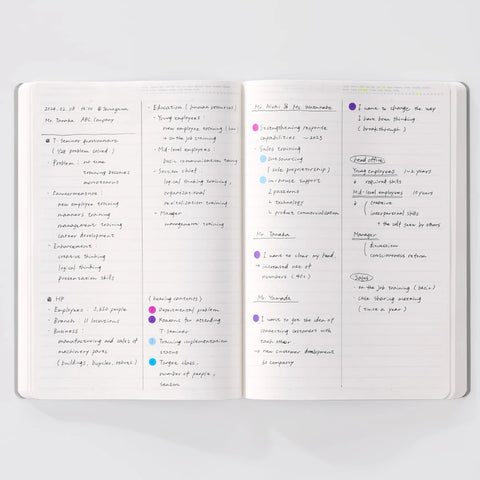 Mr. Tanaka ABC Company
T-Seminar Questionnaire
Problem : no time
training becomes
monotonous
Inexperience :
new employee training
manners training
management training
career development
Enhancement :
creative thinking
logical thinking
presentation skills
HP
Employees : 3,650 people
Branch : 11 locations
Business :
manufacturing and sales of
machinery parts
Education (human resources)
Young employees :
new employee training
→ on the job training
Mid-level employees :
basic communication training
Section chief
logical thinking training,
organizational
revitalization training
Manager
management training
(hearing contents)
Departmental problem
Reasons for attending
T-Seminar
Training implementation
status
Target class,
number of people,
season
Strengthening response
capabilities ~ 2025
Sales training
Outsourcing
(sole proprietorship)
In-house support
2 patterns
technology
product commercialization
Mr. Tanaka
I want to clear my head.
→ increased use of
numbers
Mr. Yamada
I want to for the idea of
connecting customers with
each other
→ new customer development
to company
I want to change the way
I have been thinking
(breakthrough)
Head office
Young employees 1-2 years
↓ required skills
Mid-level employees 10 years
↓ creative
interpersonal skills
+ the self seen by others
Manager
discussion
consciousness reform
Sales
on the job training (basic)
case sharing meeting
(twice a year)